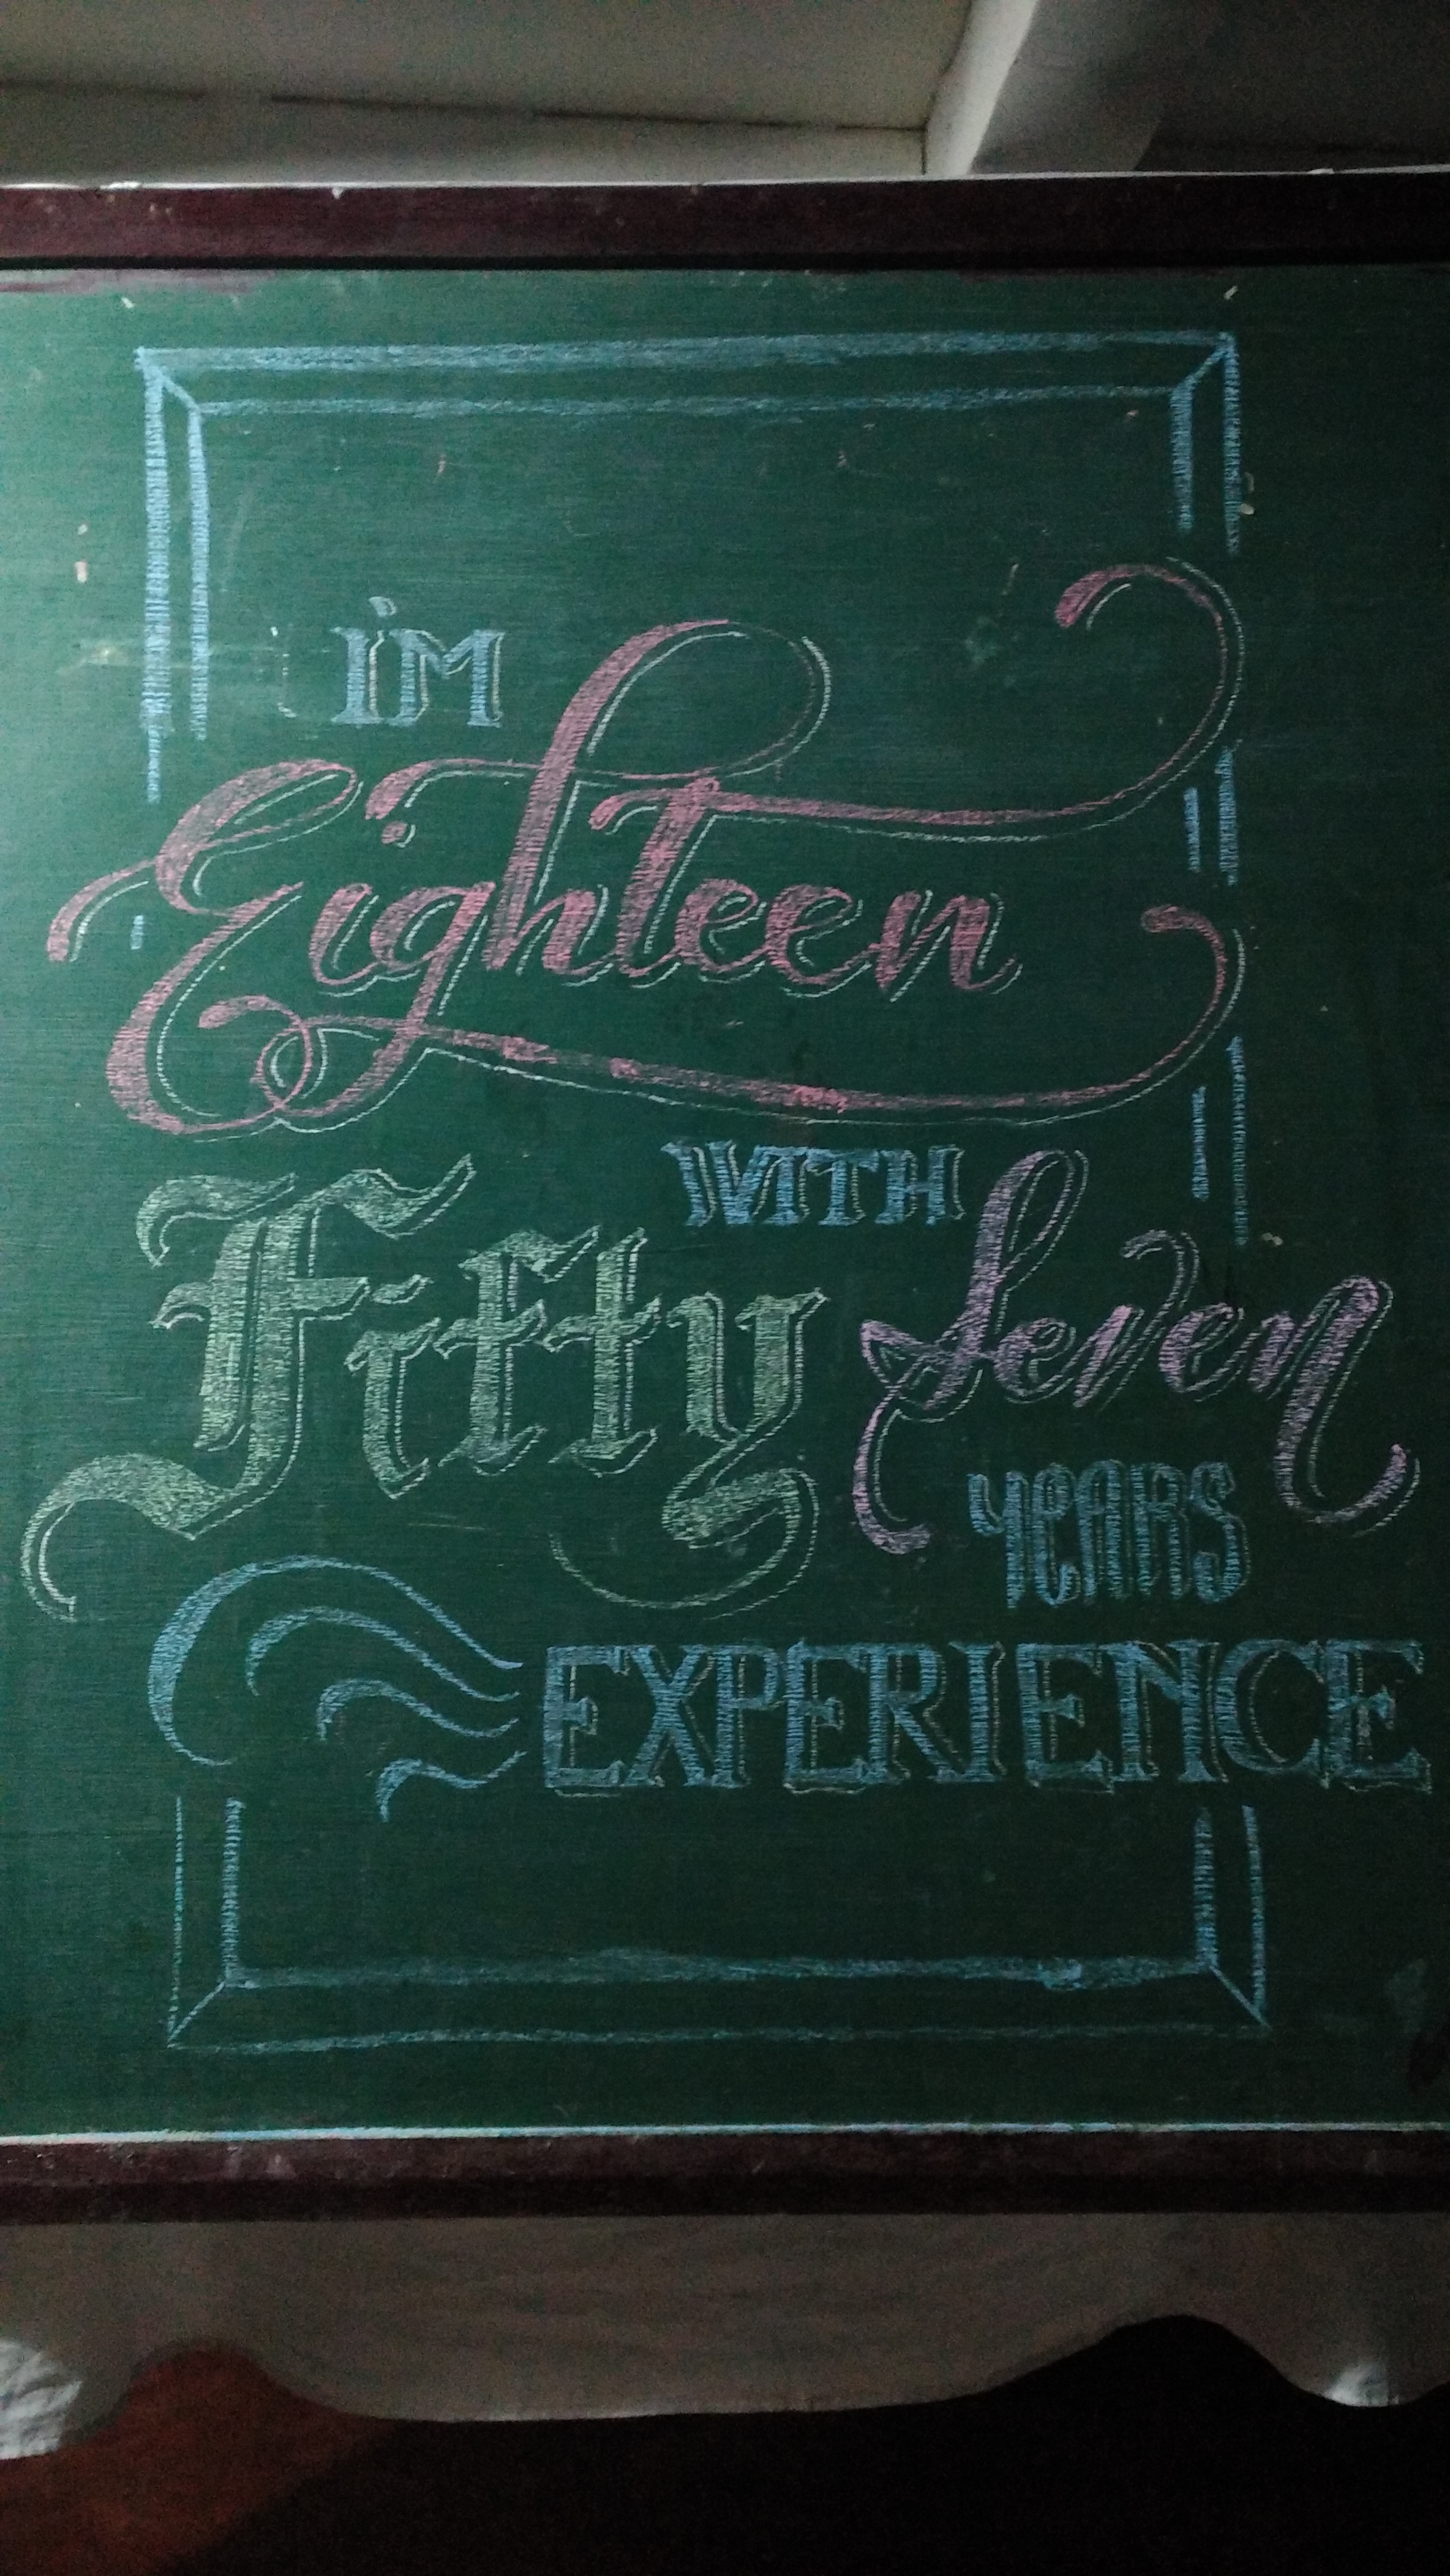 iM
Eighteen
WITH
Fifty Seven
YeARS
EXPERIENCE